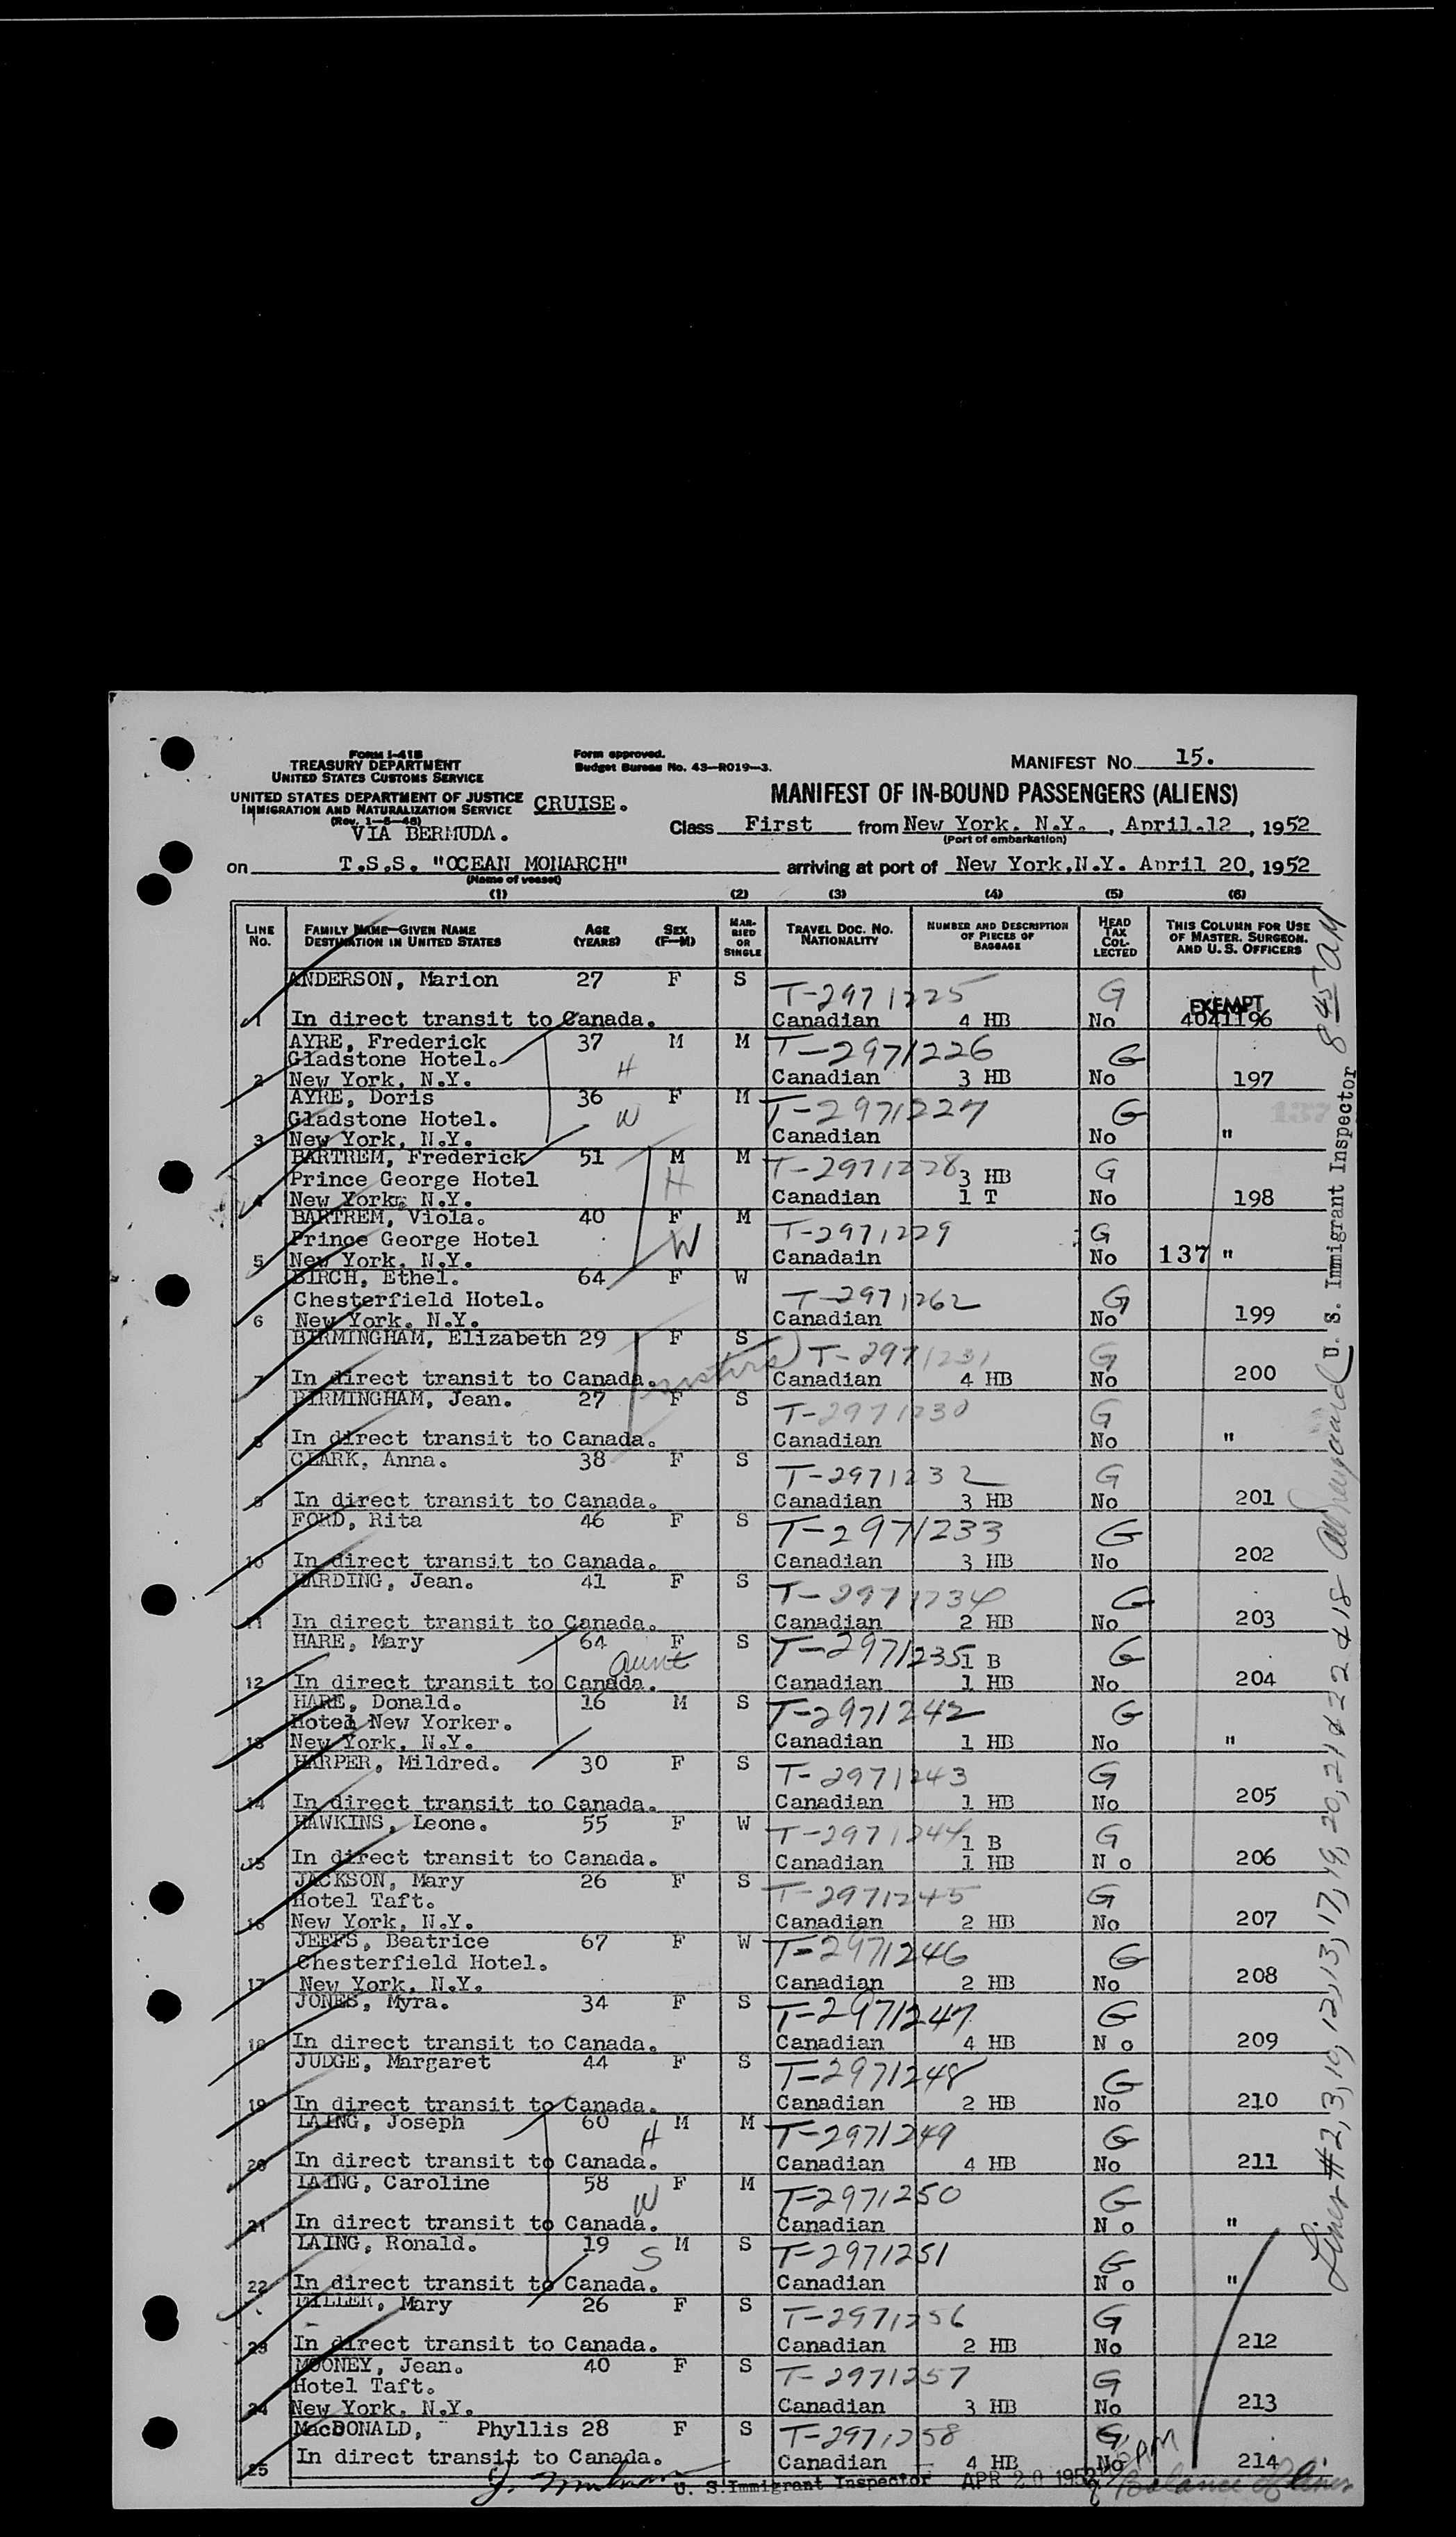 FORM I-418
TREASURY DEPARTMENT
UNITED STATES CUSTOMS SERVICE
UNITED STATES DEPARTMENT OF JUSTICE
IMMIGRATION AND NATURALIZATION SERVICE
(Rev. 1-5-48)
Form approved.
Budget Bureau No. 43—R019—3.
MANIFEST NO. 15.
CRUISE.
VIA BERMUDA.
MANIFEST OF IN-BOUND PASSENGERS (ALIENS)
Class First from New York. N.Y. , April.12 , 1952
(Port of embarkation)
on T.S.S. "OCEAN MONARCH" arriving at port of New York,N.Y. April 20, 1952
(Name of vessel)
(1) (2) (3) (4) (5) (6)
LINE NO. FAMILY NAME—GIVEN NAME DESTINATION IN UNITED STATES AGE (YEARS) SEX (F—M) MARRIED OR SINGLE TRAVEL DOC. NO. NATIONALITY NUMBER AND DESCRIPTION OF PIECES OF BAGGAGE HEAD TAX COLLECTED THIS COLUMN FOR USE OF MASTER, SURGEON, AND U. S. OFFICERS
ANDERSON, Marion 27 F S T-2971225 G EXEMPT
1 In direct transit to Canada. Canadian 4 HB No 4041196
AYRE, Frederick 37 M M T-2971226 G
Gladstone Hotel. H
2 New York, N.Y. Canadian 3 HB No 197
AYRE, Doris 36 F M T-2971227 G 137
Gladstone Hotel. W
3 New York, N.Y. Canadian No "
BARTREM, Frederick 51 M M T-2971228 G
Prince George Hotel H 3 HB
4 New York, N.Y. Canadian 1 T No 198
BARTREM, Viola. 40 F M T-2971229 G
Prince George Hotel W
5 New York, N.Y. Canadain No 137 "
BIRCH, Ethel. 64 F W T-2971262 G
Chesterfield Hotel.
6 New York. N.Y. Canadian No 199
BIRMINGHAM, Elizabeth 29 F S T-2971231 G
sisters
7 In direct transit to Canada. Canadian 4 HB No 200
BIRMINGHAM, Jean. 27 F S T-2971230 G
8 In direct transit to Canada. Canadian No "
CLARK, Anna. 38 F S T-2971232 G
9 In direct transit to Canada. Canadian 3 HB No 201
FORD, Rita 46 F S T-2971233 G
10 In direct transit to Canada. Canadian 3 HB No 202
HARDING, Jean. 41 F S T-2971234 G
11 In direct transit to Canada. Canadian 2 HB No 203
HARE, Mary 64 F S T-2971235 1 B G
aunt
12 In direct transit to Canada. Canadian 1 HB No 204
HARE, Donald. 16 M S T-2971242 G
Hotel New Yorker.
13 New York, N.Y. Canadian 1 HB No "
HARPER, Mildred. 30 F S T-2971243 G
14 In direct transit to Canada. Canadian 1 HB No 205
HAWKINS, Leone. 55 F W T-2971244 1 B G
15 In direct transit to Canada. Canadian 1 HB N o 206
JACKSON, Mary 26 F S T-2971245 G
Hotel Taft.
16 New York, N.Y. Canadian 2 HB No 207
JEFFS, Beatrice 67 F W T-2971246 G
Chesterfield Hotel.
17 New York, N.Y. Canadian 2 HB No 208
JONES, Myra. 34 F S T-2971247 G
18 In direct transit to Canada. Canadian 4 HB N o 209
JUDGE, Margaret 44 F S T-2971248 G
19 In direct transit to Canada. Canadian 2 HB No 210
LAING, Joseph 60 M M T-2971249 G
H
20 In direct transit to Canada. Canadian 4 HB No 211
LAING, Caroline 58 F M T-2971250 G
W
21 In direct transit to Canada. Canadian N o "
LAING, Ronald. 19 M S T-2971251 G
S
22 In direct transit to Canada. Canadian N o "
MILLER, Mary 26 F S T-2971256 G
23 In direct transit to Canada. Canadian 2 HB No 212
MOONEY, Jean. 40 F S T-2971257 G
Hotel Taft.
24 New York, N.Y. Canadian 3 HB No 213
MacDONALD, Phyllis 28 F S T-2971258 G
25 In direct transit to Canada. Canadian 4 HB No 214
U. S. Immigrant Inspector APR 20 1952 PM Balance of lines
Lines #2,3,10,12,13,17,19,20,21 & 22 & 18 U. S. Immigrant Inspector 8 45 AM